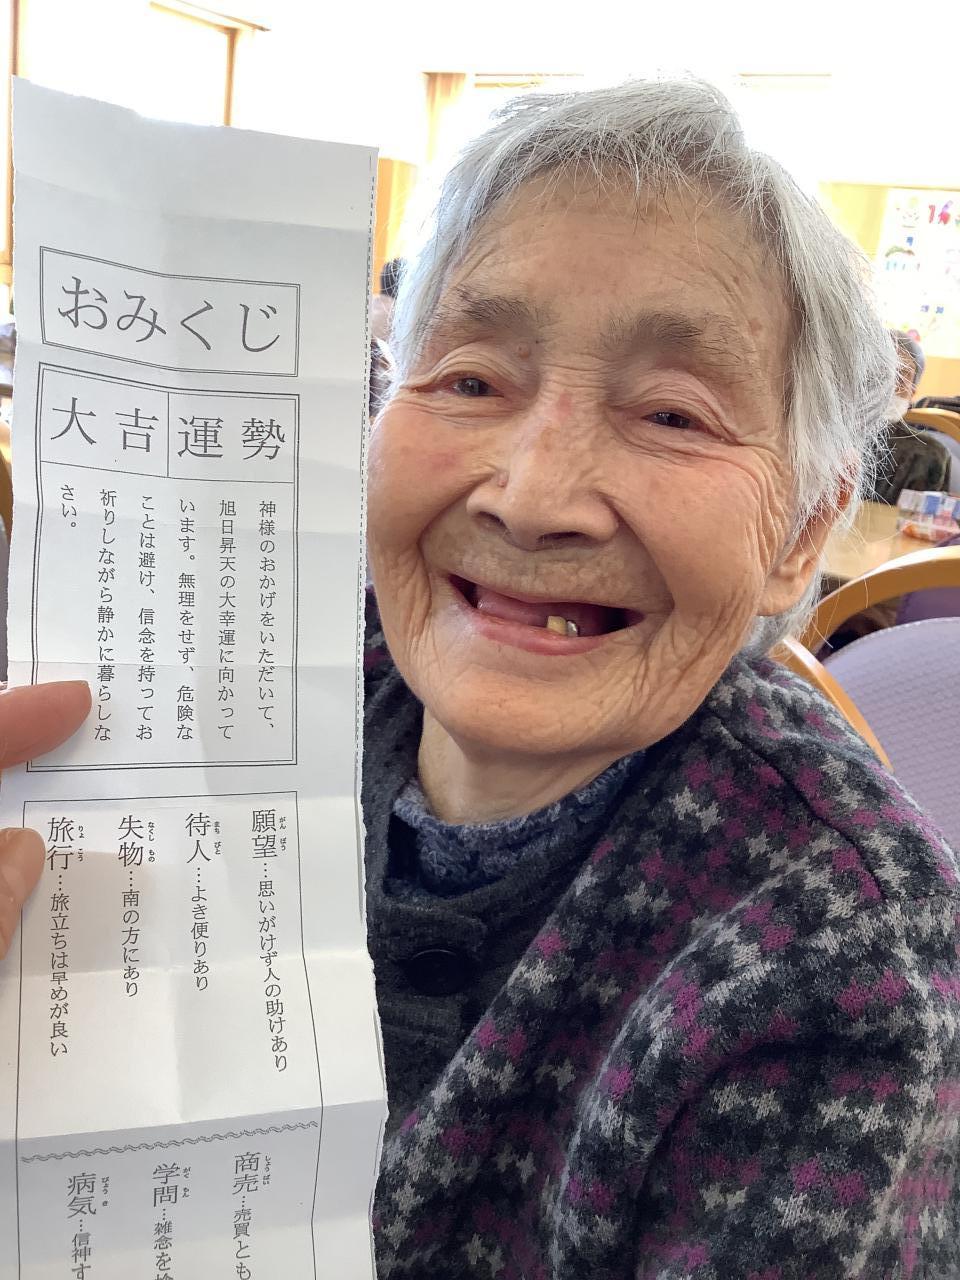 おみくじ
大吉
運勢
神様のおかげをいただいて、
旭日昇天の大幸運に向かって
います。無理をせず、危険な
ことは避け、信念を持ってお
祈りしながら静かに暮らしな
さい。
願望…思いがけず人の助けあり
がんぼう
待人…よき便りあり
まちびと
失物…南の方にあり
なくしもの
旅行…旅立ちは早めが良い
りょこう
商売…売買とも
しょうばい
学問…雑念を
がくもん
病気…信神す
びょうき